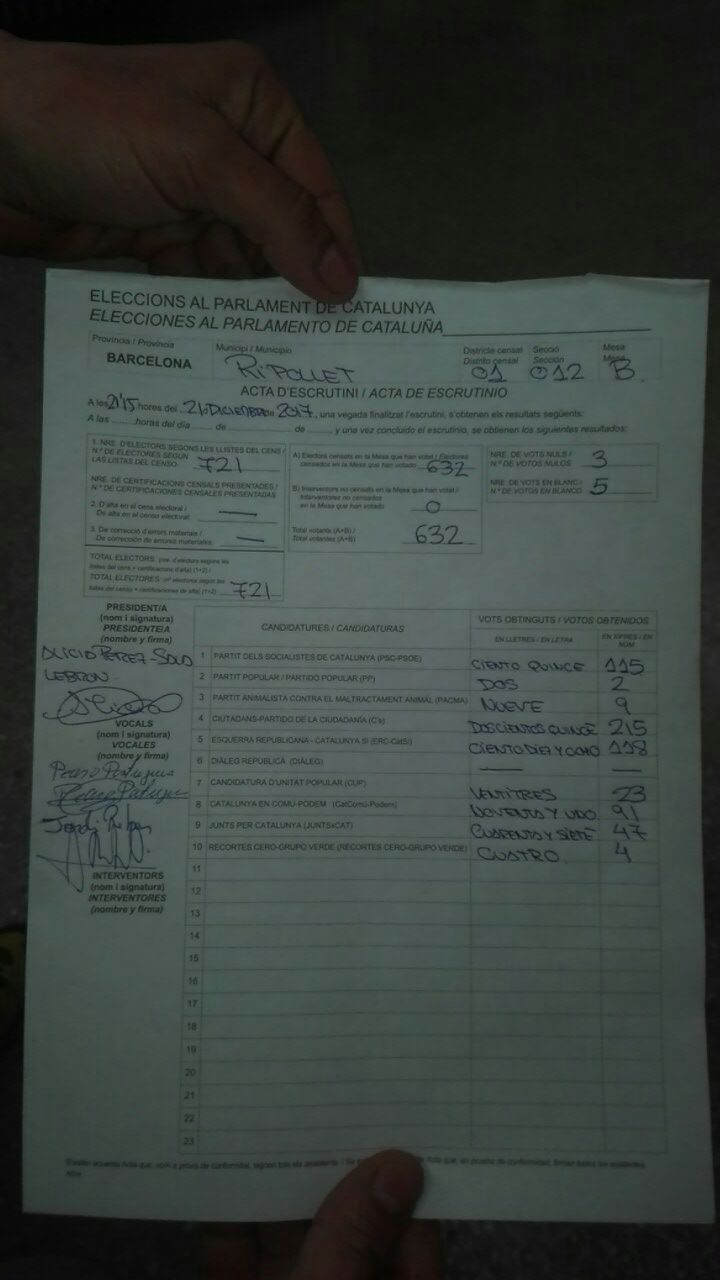 ELECCIONS AL PARLAMENT DE CATALUNYA
ELECCIONES AL PARLAMENTO DE CATALUÑA
Província / Provincia
BARCELONA
Municipi / Municipio
RIPOLLET
Districte censal
Distrito censal
01
Secció
Sección
012
Mesa
Mesa
B
ACTA D'ESCRUTINI / ACTA DE ESCRUTINIO
A les 21'15 hores del 21 DICIEMBRE de 2017, una vegada finalitzat l'escrutini, s'obtenen els resultats següents:
A las ........ horas del día ........ de ........ de ........ y una vez concluido el escrutinio, se obtienen los siguientes resultados:
1. NRE. D'ELECTORS SEGONS LES LLISTES DEL CENS /
N.º DE ELECTORES SEGÚN
LAS LISTAS DEL CENSO 721
NRE. DE CERTIFICACIONS CENSALS PRESENTADES /
N.º DE CERTIFICACIONES CENSALES PRESENTADAS
2. D'alta en el cens electoral /
De alta en el censo electoral —
3. De correcció d'errors materials /
De corrección de errores materiales —
TOTAL ELECTORS (nre. d'electors segons les
llistes del cens + certificacions d'alta) (1+2) /
TOTAL ELECTORES (nº electores según las
listas del censo + certificaciones de alta) (1+2) 721
A) Electors censats en la Mesa que han votat / Electores
censados en la Mesa que han votado 632
B) Interventors no censats en la Mesa que han votat /
Interventores no censados
en la Mesa que han votado 0
Total votants (A+B) /
Total votantes (A+B) 632
NRE. DE VOTS NULS /
N.º DE VOTOS NULOS 3
NRE. DE VOTS EN BLANC /
N.º DE VOTOS EN BLANCO 5
PRESIDENT/A
(nom i signatura)
PRESIDENTE/A
(nombre y firma)
ALICIA PEREZ-SOLO
LEBRON
VOCALS
(nom i signatura)
VOCALES
(nombre y firma)
INTERVENTORS
(nom i signatura)
INTERVENTORES
(nombre y firma)
CANDIDATURES / CANDIDATURAS
VOTS OBTINGUTS / VOTOS OBTENIDOS
EN LLETRES / EN LETRA
EN XIFRES / EN NÚM.
1 PARTIT DELS SOCIALISTES DE CATALUNYA (PSC-PSOE) CIENTO QUINCE 115
2 PARTIT POPULAR / PARTIDO POPULAR (PP) DOS 2
3 PARTIT ANIMALISTA CONTRA EL MALTRACTAMENT ANIMAL (PACMA) NUEVE 9
4 CIUTADANS-PARTIDO DE LA CIUDADANÍA (C's) DOSCIENTOS QUINCE 215
5 ESQUERRA REPUBLICANA - CATALUNYA SÍ (ERC-CatSí) CIENTO DIEZ Y OCHO 118
6 DIÀLEG REPÚBLICA (DIÀLEG) — —
7 CANDIDATURA D'UNITAT POPULAR (CUP) VENTITRES 23
8 CATALUNYA EN COMÚ-PODEM (CatComú-Podem) NOVENTA Y UNO 91
9 JUNTS PER CATALUNYA (JUNTSxCAT) CUARENTA Y SIETE 47
10 RECORTES CERO-GRUPO VERDE (RECORTES CERO-GRUPO VERDE) CUATRO 4
11
12
13
14
15
16
17
18
19
20
21
22
23